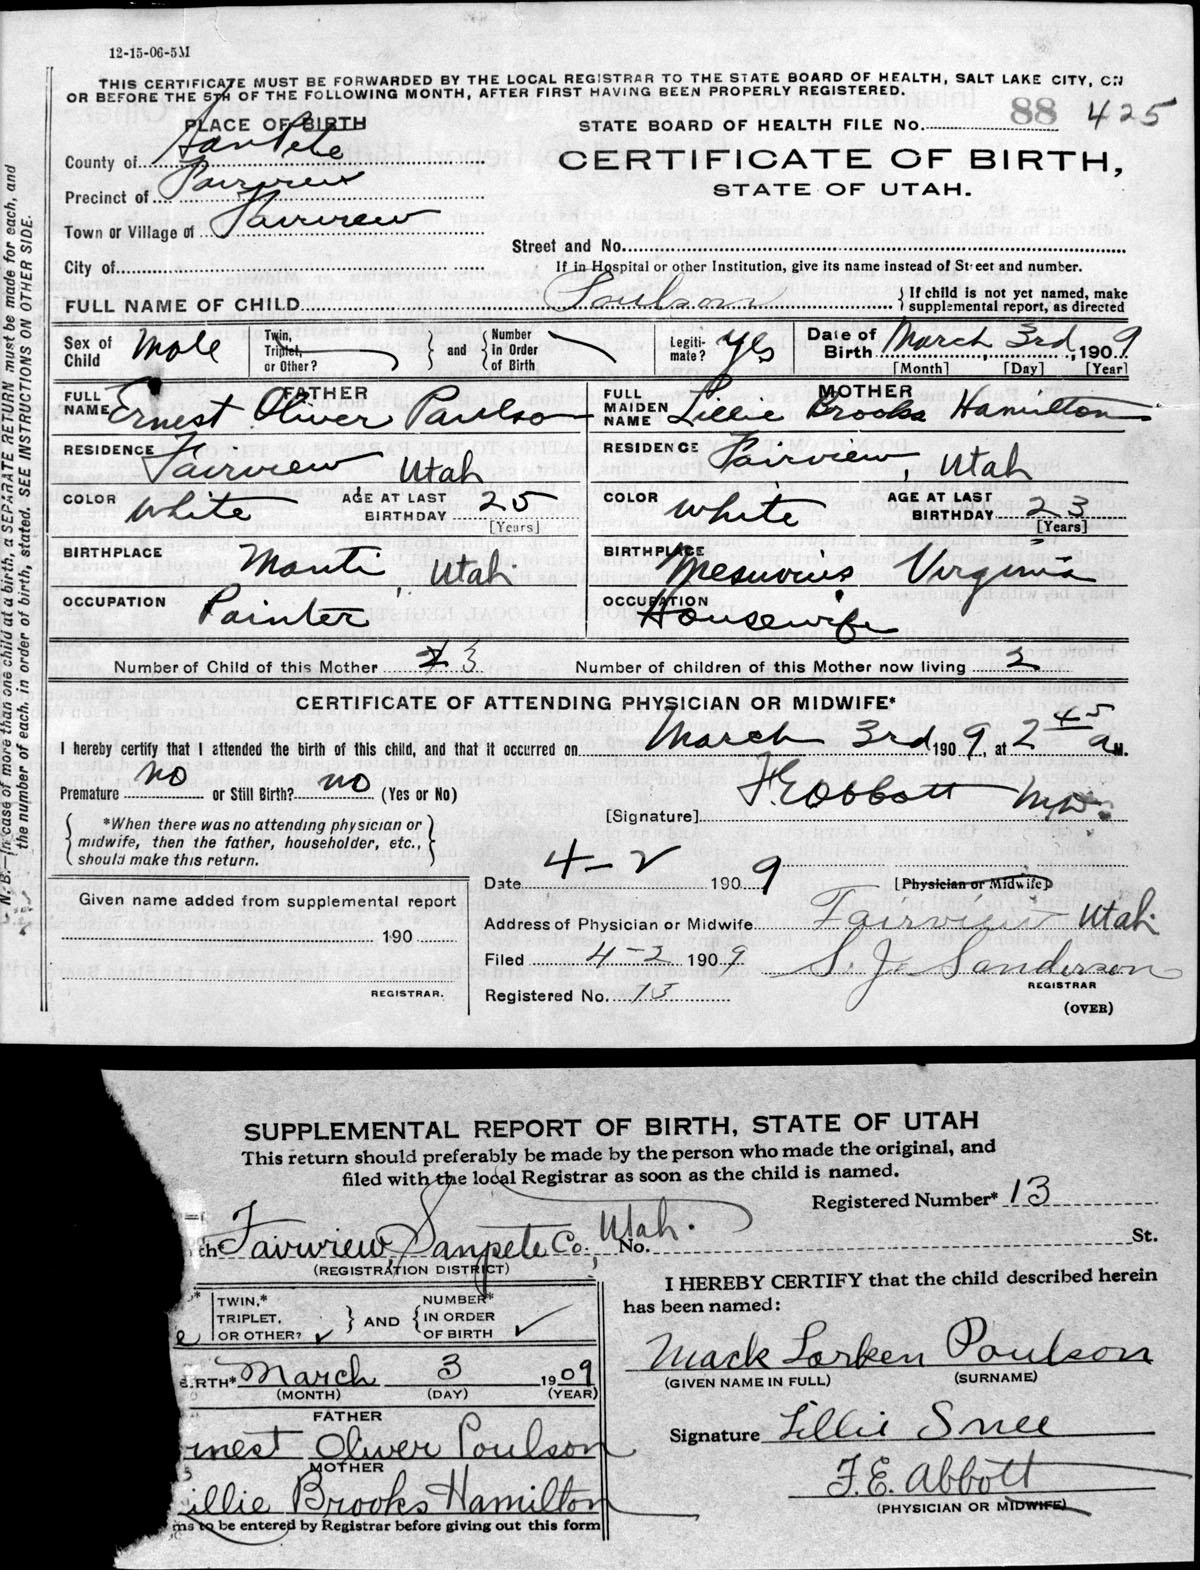 12-15-06-5M
THIS CERTIFICATE MUST BE FORWARDED BY THE LOCAL REGISTRAR TO THE STATE BOARD OF HEALTH, SALT LAKE CITY, ON
OR BEFORE THE 5TH OF THE FOLLOWING MONTH, AFTER FIRST HAVING BEEN PROPERLY REGISTERED.
PLACE OF BIRTH
STATE BOARD OF HEALTH FILE No. 88 425
County of SanPete
CERTIFICATE OF BIRTH,
STATE OF UTAH.
Precinct of Fairview
Town or Village of Fairview
Street and No.
City of
If in Hospital or other Institution, give its name instead of Street and number.
FULL NAME OF CHILD Poulson { If child is not yet named, make supplemental report, as directed
Sex of Child Male Twin, Triplet, or Other? } and { Number In Order of Birth Legiti-mate? Yes Date of Birth March 3rd, 1909
[Month] [Day] [Year]
FATHER
FULL NAME Ernest Oliver Paulson
MOTHER
FULL MAIDEN NAME Lillie Brooks Hamilton
RESIDENCE Fairview Utah
RESIDENCE Fairview, Utah
COLOR White AGE AT LAST BIRTHDAY 25 [Years]
COLOR White AGE AT LAST BIRTHDAY 23 [Years]
BIRTHPLACE Manti, Utah
BIRTHPLACE Mesuvius Virginia
OCCUPATION Painter
OCCUPATION Housewife
Number of Child of this Mother 3
Number of children of this Mother now living 2
CERTIFICATE OF ATTENDING PHYSICIAN OR MIDWIFE*
I hereby certify that I attended the birth of this child, and that it occurred on March 3rd 1909, at 2 45 a M.
Premature no or Still Birth? no (Yes or No)
[Signature] F. E. Abbott M.D.
{ *When there was no attending physician or midwife, then the father, householder, etc., should make this return. }
Date 4-2 1909
[Physician or Midwife]
Given name added from supplemental report
190
REGISTRAR.
Address of Physician or Midwife Fairview Utah.
Filed 4-2 1909 S. J. Sanderson
REGISTRAR
Registered No. 13
(OVER)
N. B.—In case of more than one child at a birth, a SEPARATE RETURN must be made for each, and
the number of each, in order of birth, stated. SEE INSTRUCTIONS ON OTHER SIDE.
SUPPLEMENTAL REPORT OF BIRTH, STATE OF UTAH
This return should preferably be made by the person who made the original, and
filed with the local Registrar as soon as the child is named.
Registered Number* 13
th Fairview, Sanpete Co., Utah. No. St.
(REGISTRATION DISTRICT)
I HEREBY CERTIFY that the child described herein
has been named:
e TWIN,* TRIPLET, OR OTHER? ✓ } AND { NUMBER* IN ORDER OF BIRTH ✓
Mack Larken Poulson
(GIVEN NAME IN FULL) (SURNAME)
IRTH* March 3 1909
(MONTH) (DAY) (YEAR)
FATHER
rnest Oliver Poulson
Signature Lillie Snee
MOTHER
illie Brooks Hamilton
F. E. Abbott
(PHYSICIAN OR MIDWIFE)
ms to be entered by Registrar before giving out this form